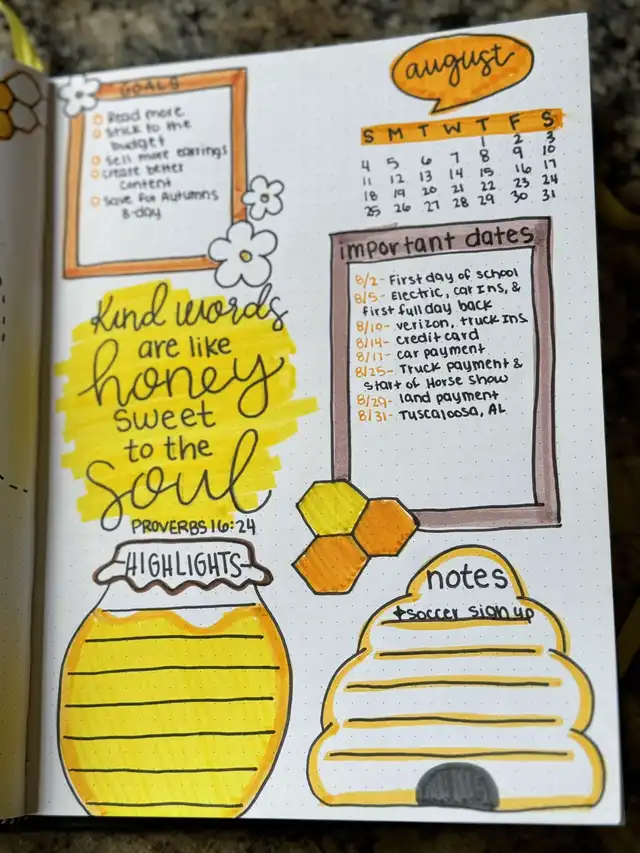 GOALS
Read more
Stick to the
budget
Sell more earrings
Create better
content
Save for Autumns
B-day
Kind words
are like
honey
sweet
to the
soul
PROVERBS 16:24
august
S M T W T F S
1 2 3
4 5 6 7 8 9 10
11 12 13 14 15 16 17
18 19 20 21 22 23 24
25 26 27 28 29 30 31
important dates
8/2- First day of school
8/5- Electric, car Ins, &
first full day back
8/10- verizon, truck Ins
8/14- credit card
8/17- car payment
8/25- Truck payment &
start of Horse show
8/29- land payment
8/31- Tuscaloosa, AL
HIGHLIGHTS
notes
*soccer sign up